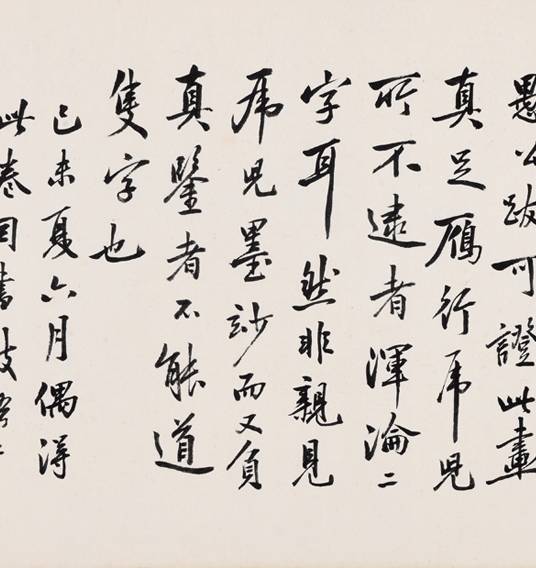 愚公跋可證此畫
真足雁行虎兒
所不逮者渾淪二
字耳然非親見
虎兒墨妙而又負
真鑒者不能道
隻字也
己未夏六月偶得
此卷因書